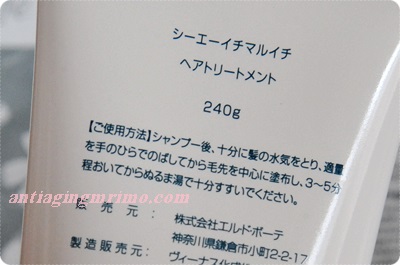 シーエーイチマルイチ
ヘアトリートメント
240g
【ご使用方法】シャンプー後、十分に髪の水気をとり、適量
を手のひらでのばしてから毛先を中心に塗布し、3〜5分
程おいてからぬるま湯で十分すすいでください。
antiagingmrimo.com
発売元: 株式会社エルド・ボーテ
神奈川県鎌倉市小町2-2-17
製造販売元: ヴィーナス化成